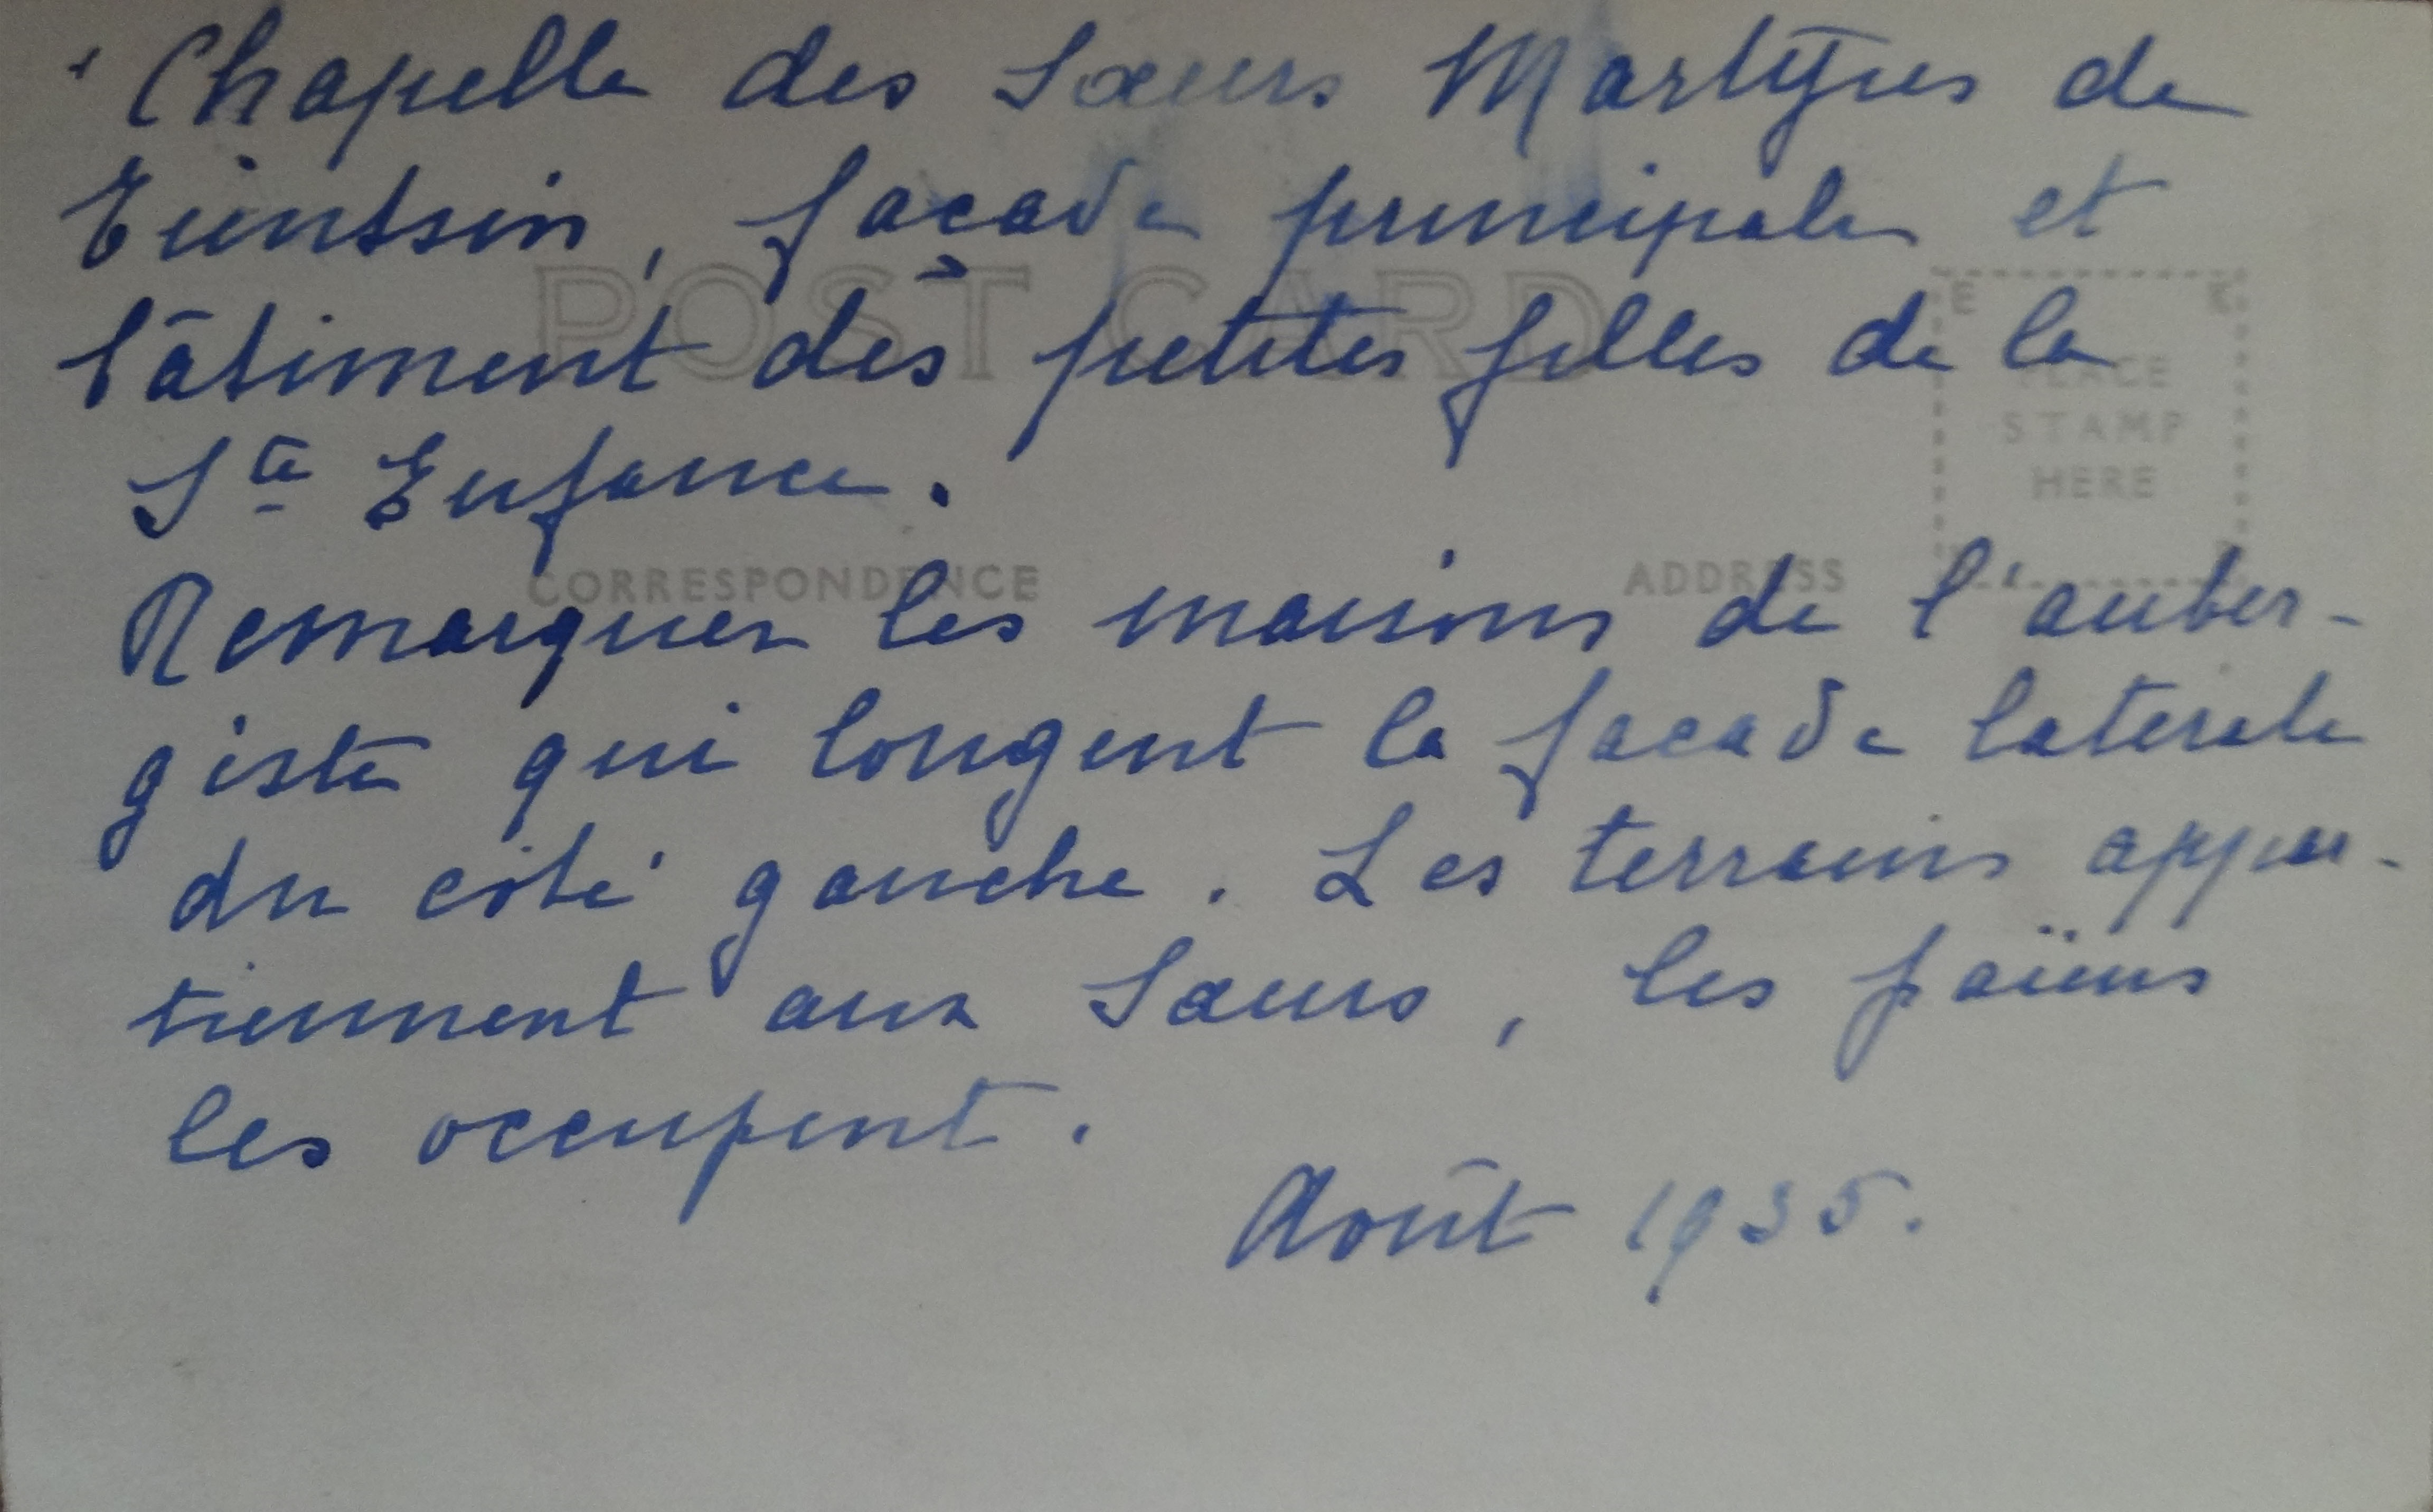 + Chapelle des Sœurs Martyres de
Tientsin, façade principale et
bâtiment des petites filles de la
Ste Enfance.
Remarquer les maisons de l'auber-
giste qui longent la facade laterale
du côté gauche. Les terrains appar-
tiennent aux Sœurs, les païens
les occupent.
Août 1935.
POST CARD
CORRESPONDENCE
ADDRESS
PLACE
STAMP
HERE